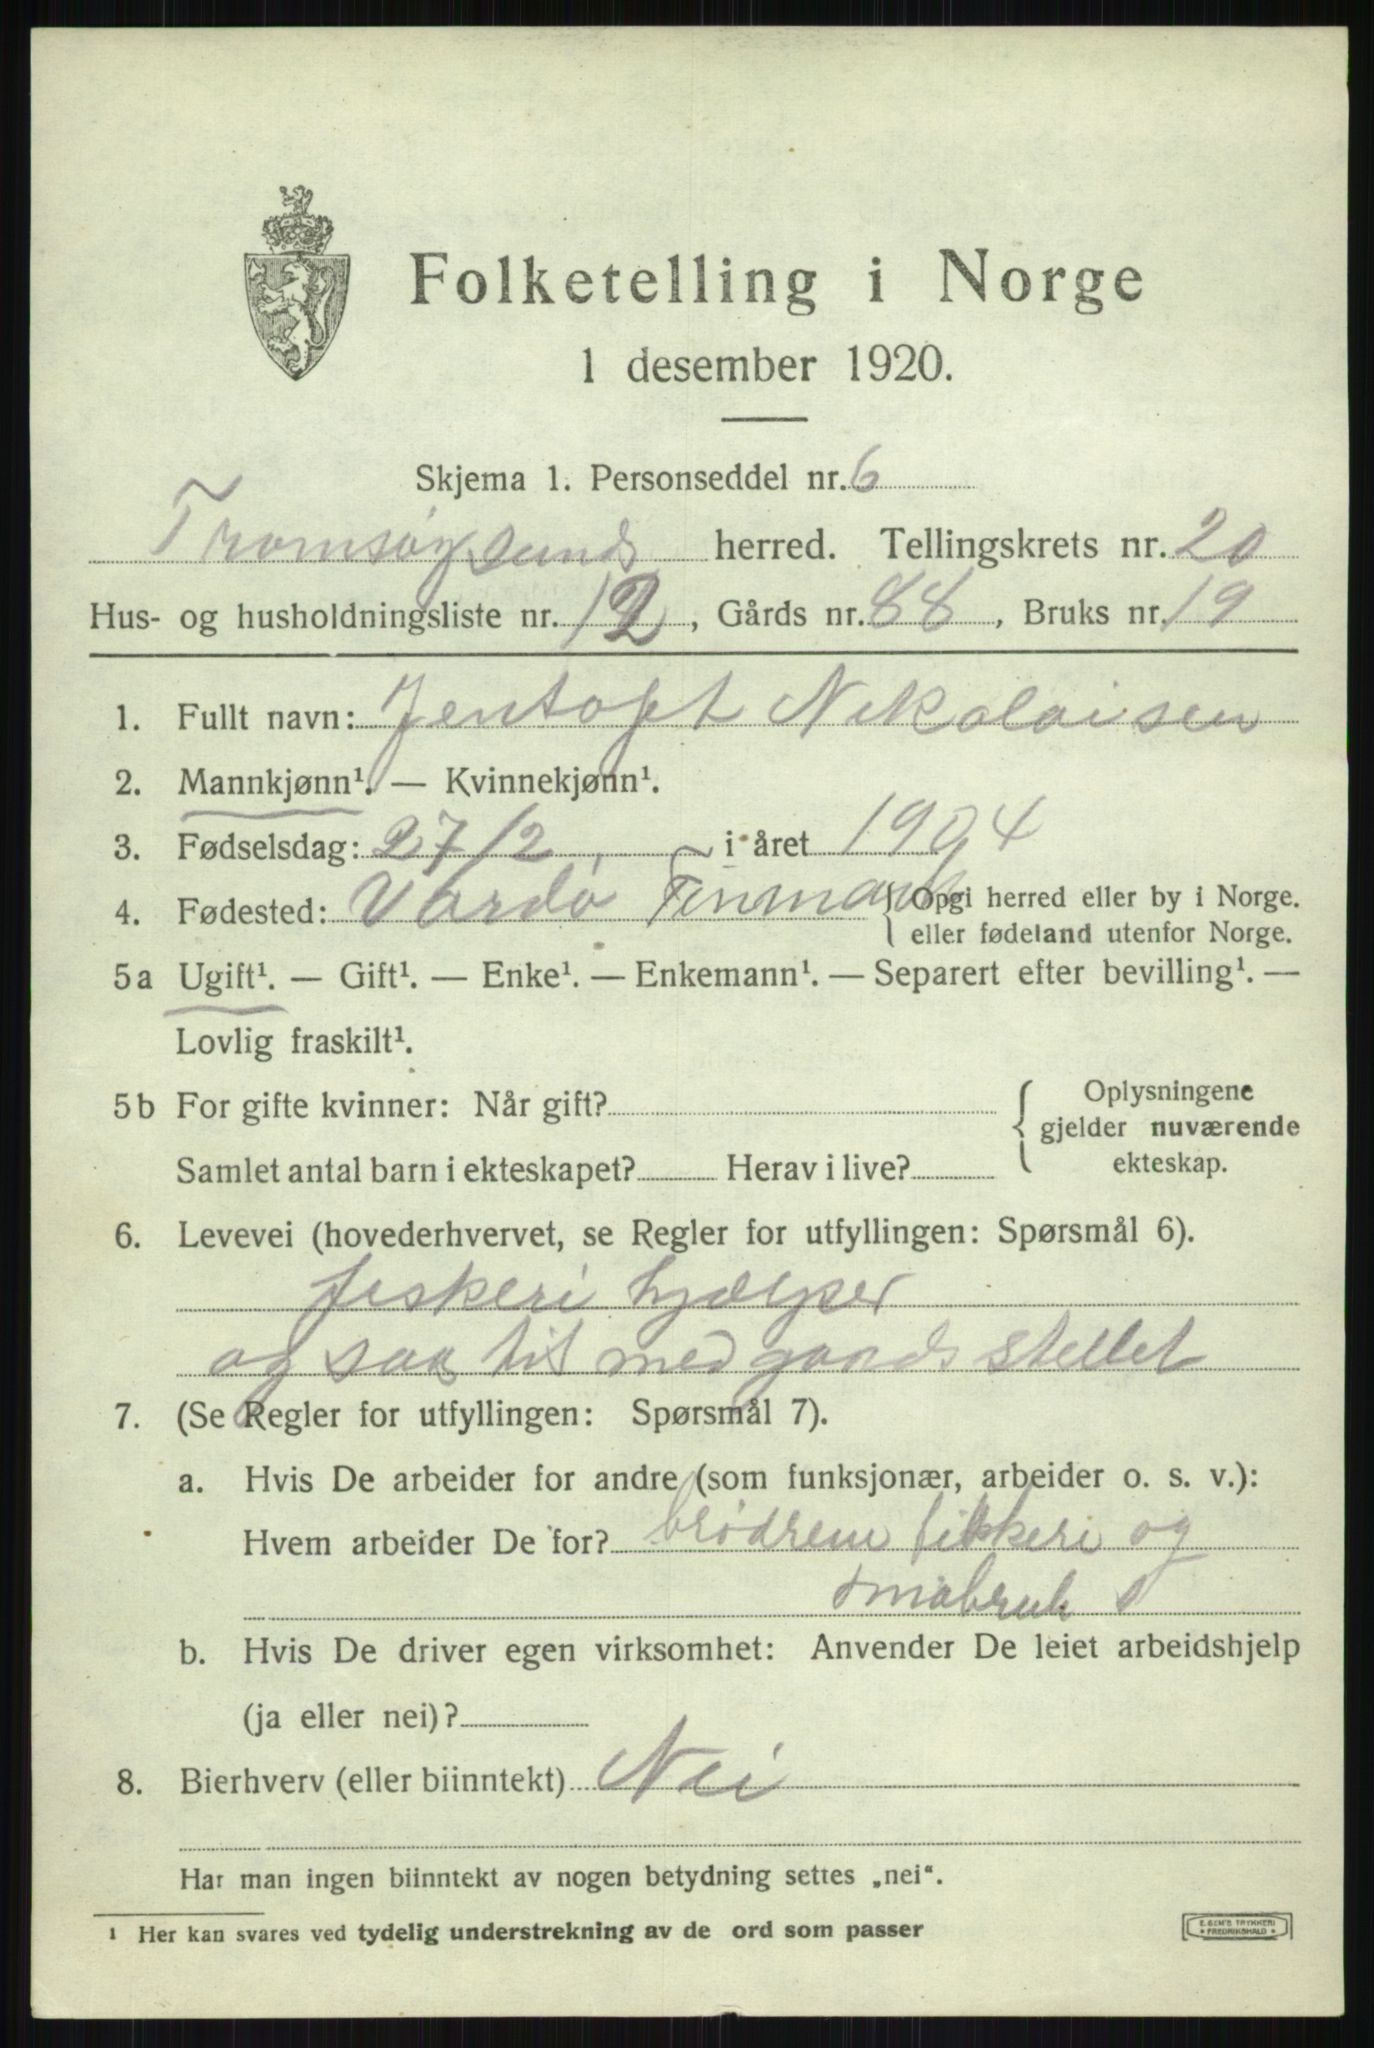 Folketelling i Norge
1 desember 1920.
Skjema 1. Personseddel nr. 6
Tromsøysunds herred. Tellingskrets nr. 20
Hus- og husholdningsliste nr. 12, Gårds nr. 88, Bruks nr. 19
1. Fullt navn: Jentoft Nikolaisen
2. Mannkjønn¹. — Kvinnekjønn¹.
3. Fødselsdag: 27/2 i året 1904
4. Fødested: Vardö Finmark { Opgi herred eller by i Norge.
eller fødeland utenfor Norge.
5a Ugift¹. — Gift¹. — Enke¹. — Enkemann¹. — Separert efter bevilling¹. —
Lovlig fraskilt¹.
5b For gifte kvinner: Når gift? { Oplysningene
gjelder nuværende
Samlet antal barn i ekteskapet? Herav i live? ekteskap.
6. Levevei (hovederhvervet, se Regler for utfyllingen: Spørsmål 6).
fiskeri hjælper
og saa til med gaards stellet
7. (Se Regler for utfyllingen: Spørsmål 7).
a. Hvis De arbeider for andre (som funksjonær, arbeider o. s. v.):
Hvem arbeider De for? brödrene fikkeri og
småbruk
b. Hvis De driver egen virksomhet: Anvender De leiet arbeidshjelp
(ja eller nei)?
8. Bierhverv (eller biinntekt) Nei
Har man ingen biinntekt av nogen betydning settes „nei“.
¹ Her kan svares ved tydelig understrekning av de ord som passer
E. SEM'S TRYKKERI
FREDRIKSHALD